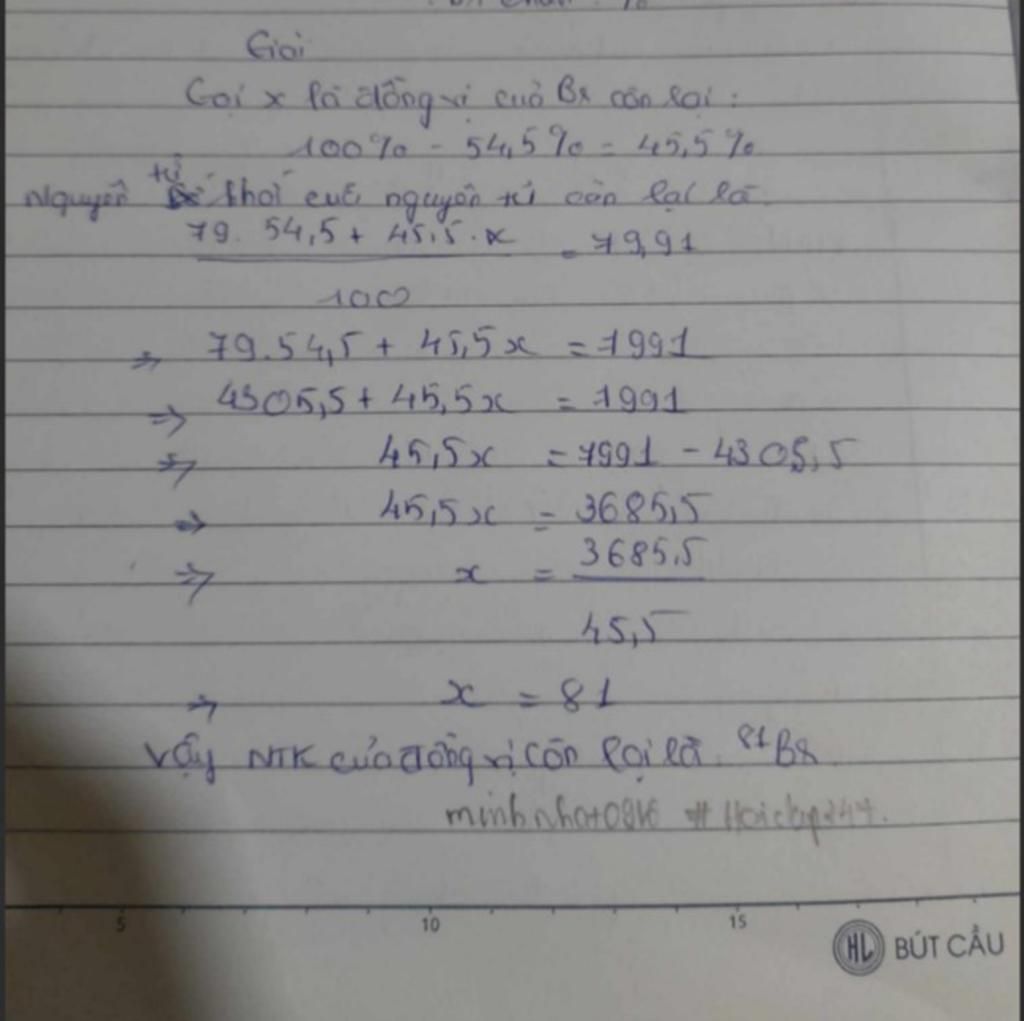 Giải
Gọi x là đồng vị của Br còn lại:
100% - 54,5% = 45,5%
Nguyên tử khối của nguyên tử còn lại là
79. 54,5 + 45,5.x = 79,91
100
=> 79.54,5 + 45,5x = 7991
=> 4305,5 + 45,5x = 7991
=> 45,5x = 7991 - 4305,5
=> 45,5x = 3685,5
=> x = 3685,5
45,5
=> x = 81
Vậy NTK của đồng vị còn lại là. 81Br
5 10 15
HL BÚT CẦU